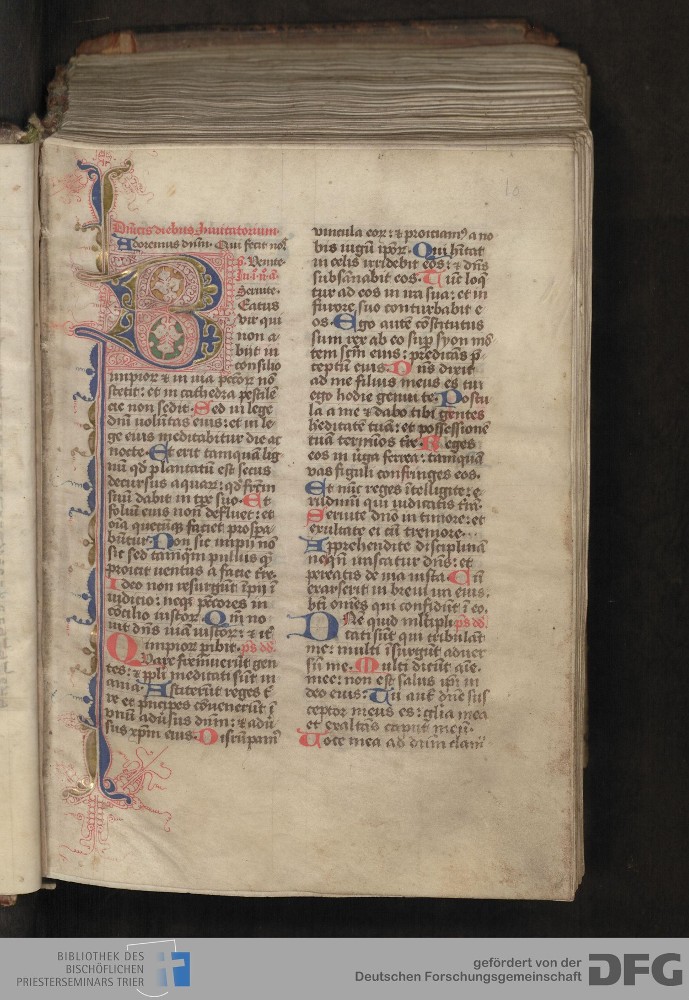 Dnicis diebus Inuitatorium.
Adoremus dnm. Qui fecit nos
p. Venite.
Seruite.
Beatus
vir qui
non a
bijt in
consilio
impior⁊ et in via pecc̄or⁊ nō
stetit: et in cathedra pestilē
cie non sedit. Sed in lege
dnī volūtas eius: et in le
ge eius meditabitur die ac
nocte. Et erit tamquā lig
nū qd̄ plantatū est secus
decursus aquar⁊: qd̄ fr̄cm
suū dabit in tp̄e suo. Et
foliū eius non defluet: et
oīa quecūqꝫ faciet prospa
būtur. Non sic impij nō
sic sed tamqm̄ puluis qͥ
proicit uentus a facie tr̄e.
Ideo non resurgūt īpij ī
iudicio: neqꝫ pc̄cores in
cōcilio iustor⁊. Qm̄ no
uit dn̄s uiā iustor⁊: et it̄
impior⁊ pibit. ps dd.
Quare frēmuerūt gen
tes: et ppli meditati sūt in
ania. Astiterūt reges t̄
re et pncipes cōuenerūt ī
vnū adūsus dnm̄: et adū
sus xp̄m eius. Disrūpam⁹
vincula eor⁊: et proiciam⁹ a no
bis iugū ipōr⁊. Qui hītat
in celis irridebit eos: et dn̄s
subsānabit eos. Tūc loqͥ
tur ad eos in ira sua: et in
furore suo conturbabit e
os. Ego autē cōstitutus
sum rex ab eo sup syon mō
tem scm̄ eius: predicās p̄
ceptū eius. Dn̄s dixit
ad me filius meus es tu
ego hodie genui te. Postu
la a me et dabo tibi gentes
heditatē tuā: et possessionē
tuā termīos tr̄e. Reges
eos in uga ferrea: tamquā
vas figuli confringes eos.
Et nūc reges ītelligite: e
rudimī qui iudicatis trā.
Seruite dn̄o in timore: et
exultate ei cū tremore.
Apprehendite disciplinā
neqn̄ irascatur dn̄s: et
pereatis de uia iusta. Cū
exarserit in breui ira eius:
bt̄i om̄es qui confidūt ī eo.
Dn̄e quid mltiplicati ps dd.
cati sūt qui tribulāt
me: multi īsurgūt aduer
sū me. Multi dicūt aīe
mee: non est salus ip̄i in
deo eius. Tu aut̄ dn̄e sus
ceptor meus es: gl̄ia mea
et exaltās caput meū.
Uoce mea ad dnm̄ clam̄
BIBLIOTHEK DES
BISCHÖFLICHEN
PRIESTERSEMINARS TRIER
gefördert von der
Deutschen Forschungsgemeinschaft
DFG